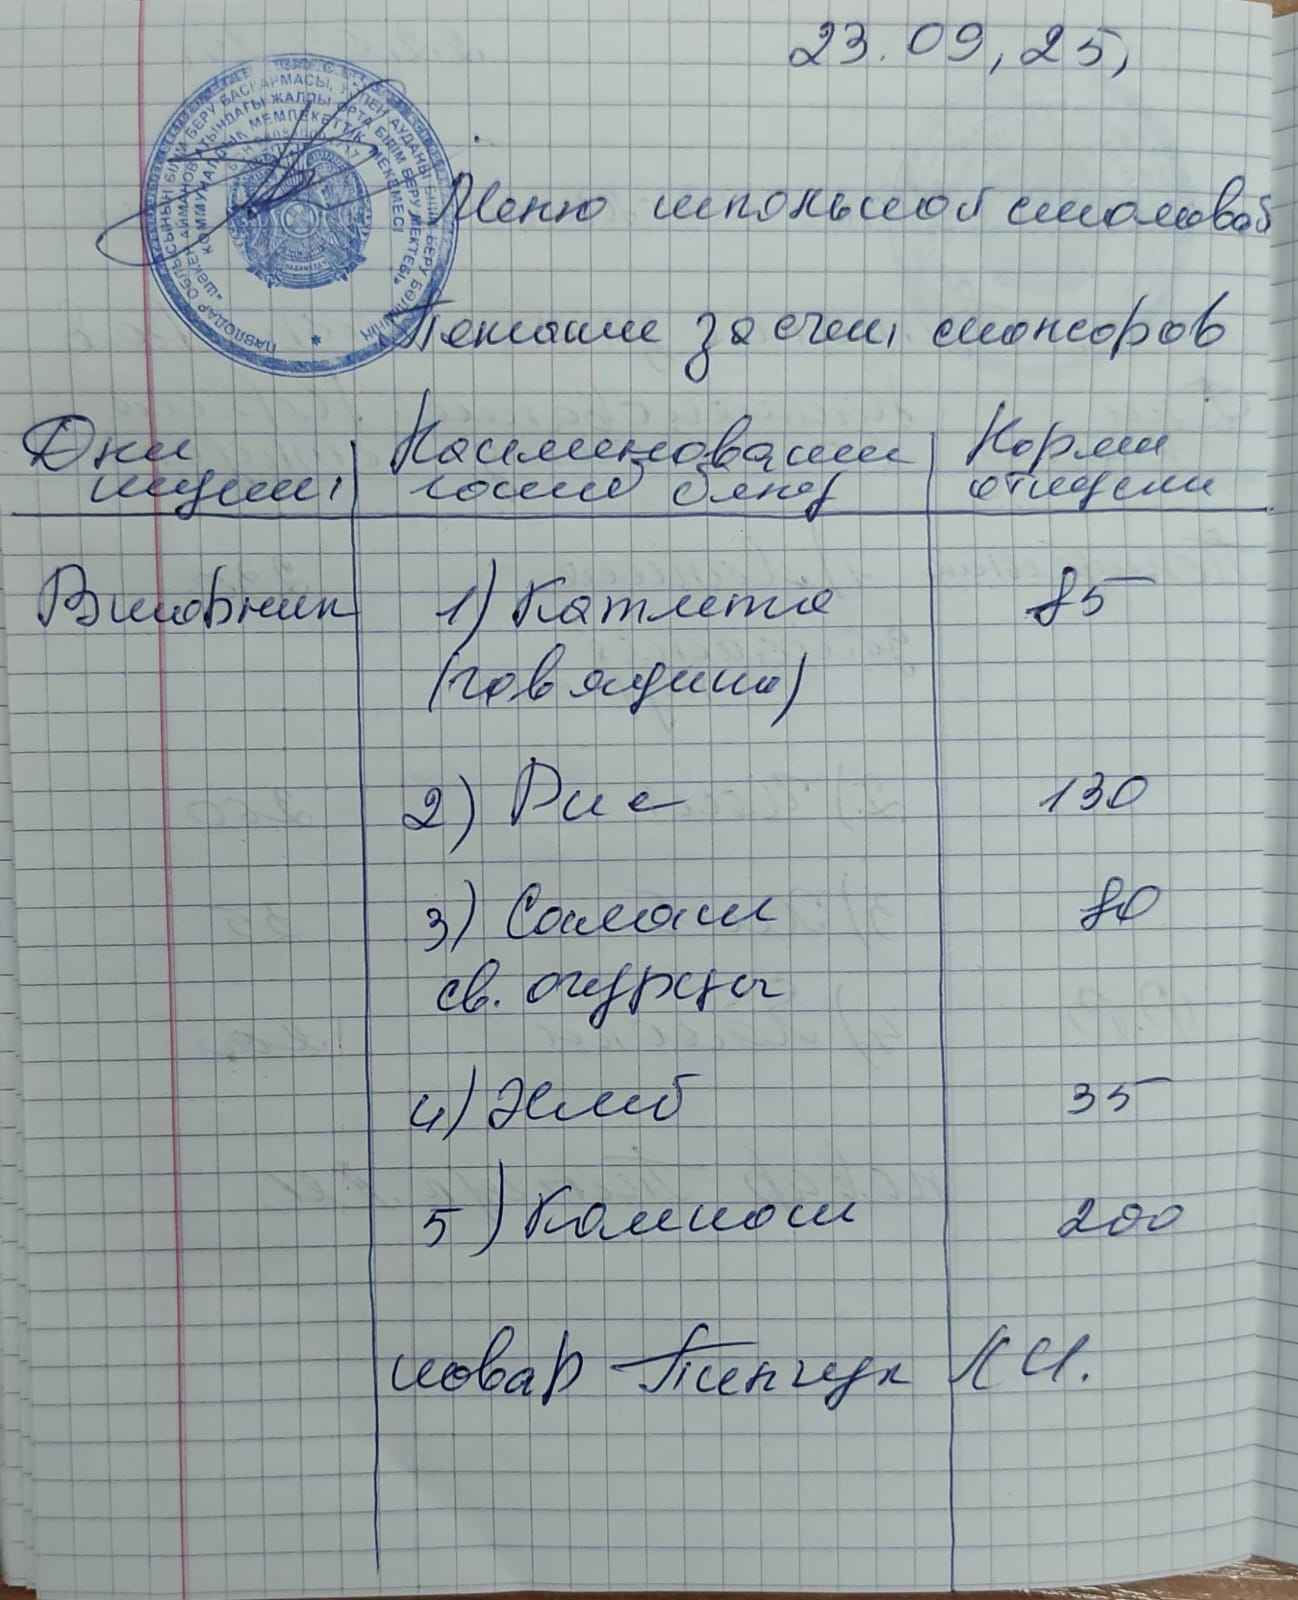 23.09,25,
ПАВЛОДАР ОБЛЫСЫНЫҢ БІЛІМ БЕРУ БАСҚАРМАСЫ, АУДАНЫ БІЛІМ БЕРУ БӨЛІМІНІҢ
"ШӘКЕН АЙМАНОВ АТЫНДАҒЫ ЖАЛПЫ ОРТА БІЛІМ БЕРУ МЕКТЕБІ"
КОММУНАЛДЫҚ МЕМЛЕКЕТТІК МЕКЕМЕСІ
Меню школьной столовой
Питание за счет спонсоров
Дни Наименование Нормы
готов блюд отпуска
Вторник 1) Катлета 85
(говядина)
2) Рис 130
3) Салат 80
св. огурцы
4) Хлеб 35
5) Компот 200
повар